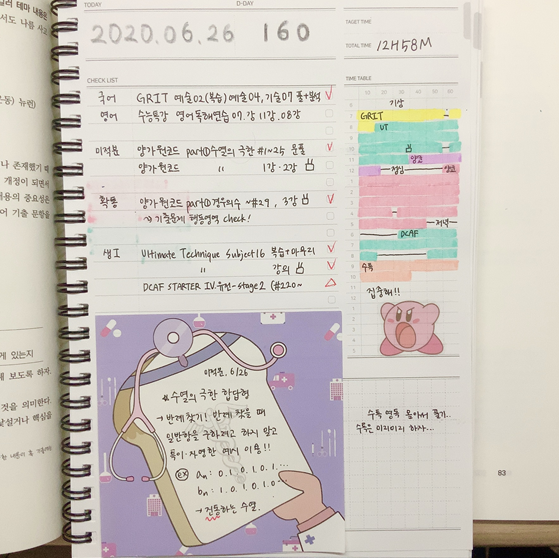 TODAY
D-DAY
2020.06.26
160
TAGET TIME
TOTAL TIME 12H58M
CHECK LIST
TIME TABLE
국어 GRIT 예술02(복습) 예술04, 기술07 풀+분석
영어 수능특강 영어독해연습 07강 11강. 08강
미적분 양가원코드 part① 수열의 극한 #1~25 문풀
양가원코드 〃 1강·2강
확통 양가원코드 part① 경우의수 ~#29, 3강
기출문제 행동영역 check!
생I Ultimate Technique Subject16 복습+마무리
〃 강의
DCAF STARTER IV.유전-stage2 (#220~
기상
GRIT
UT
양코
점심
양코
저녁
DCAF
수특
집중해!!
미적분. 6/26
수열의 극한 합답형
→ 반례찾기! 반례 찾을 때
일반항을 구하려고 하지 말고
특이·자명한 예시 이용!!
ex an: 0.1.0.1.0.1...
bn: 1.0.1.0.1.0...
→ 진동하는 수열.
수특 영독 몰아서 풀기..
수특은 미리미리 하자...
83